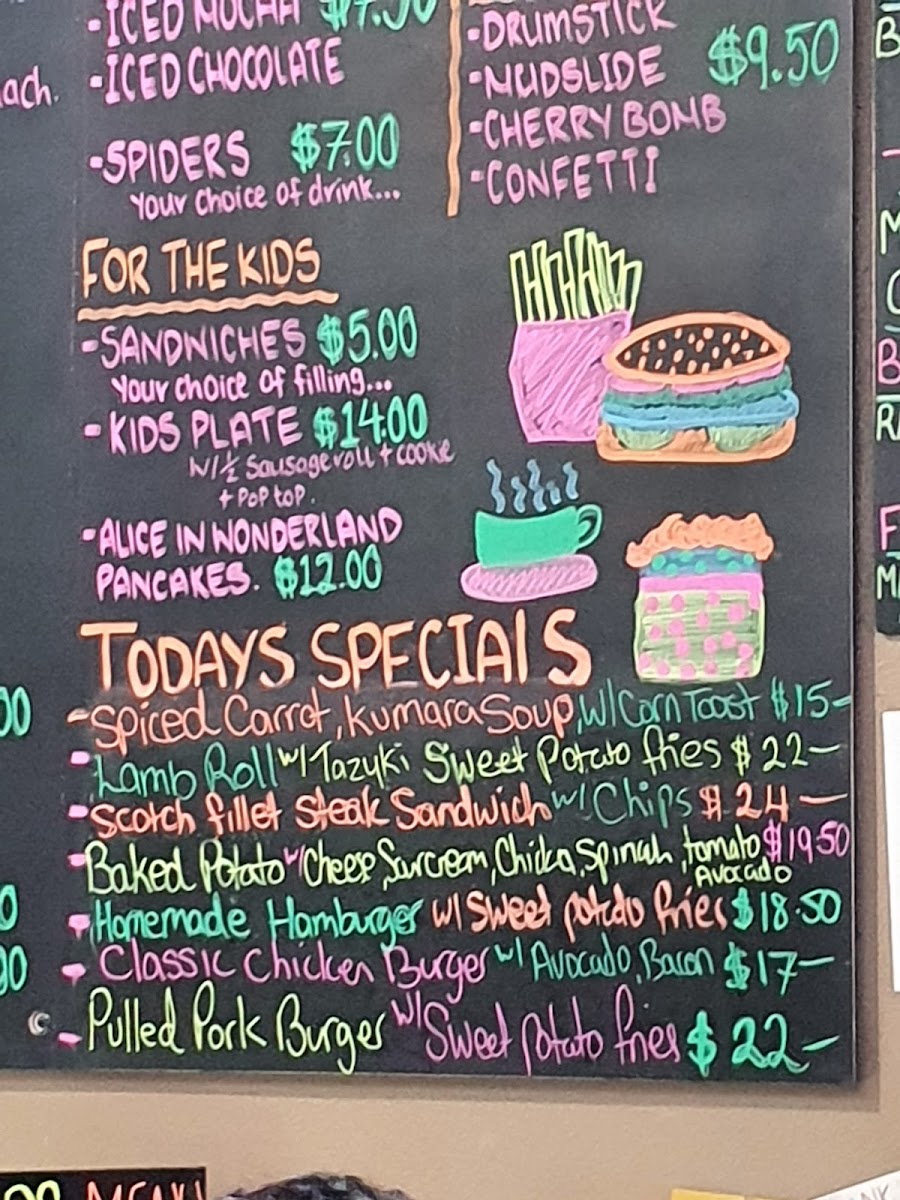 ach.
-ICED MOCHA $7.50
-ICED CHOCOLATE
-SPIDERS $7.00
Your choice of drink...
-DRUMSTICK
-MUDSLIDE $9.50
-CHERRY BOMB
-CONFETTI
FOR THE KIDS
-SANDWICHES $5.00
Your choice of filling...
-KIDS PLATE $14.00
W/½ Sausage roll + cookie
+ Pop top.
-ALICE IN WONDERLAND
PANCAKES. $12.00
TODAYS SPECIALS
-Spiced Carrot, Kumara Soup, w/Corn Toast $15-
-Lamb Roll w/Tazyki Sweet Potato fries $22-
-Scotch fillet Steak Sandwich w/ Chips $24-
-Baked Potato w/Cheese, Surcream, Chicka, Spinach, tomato $19.50
Avocado
-Homemade Hamburger w/ Sweet potato fries $18.50
-Classic Chicken Burger w/ Avocado, Bacon $17-
-Pulled Pork Burger w/ Sweet potato fries $22-